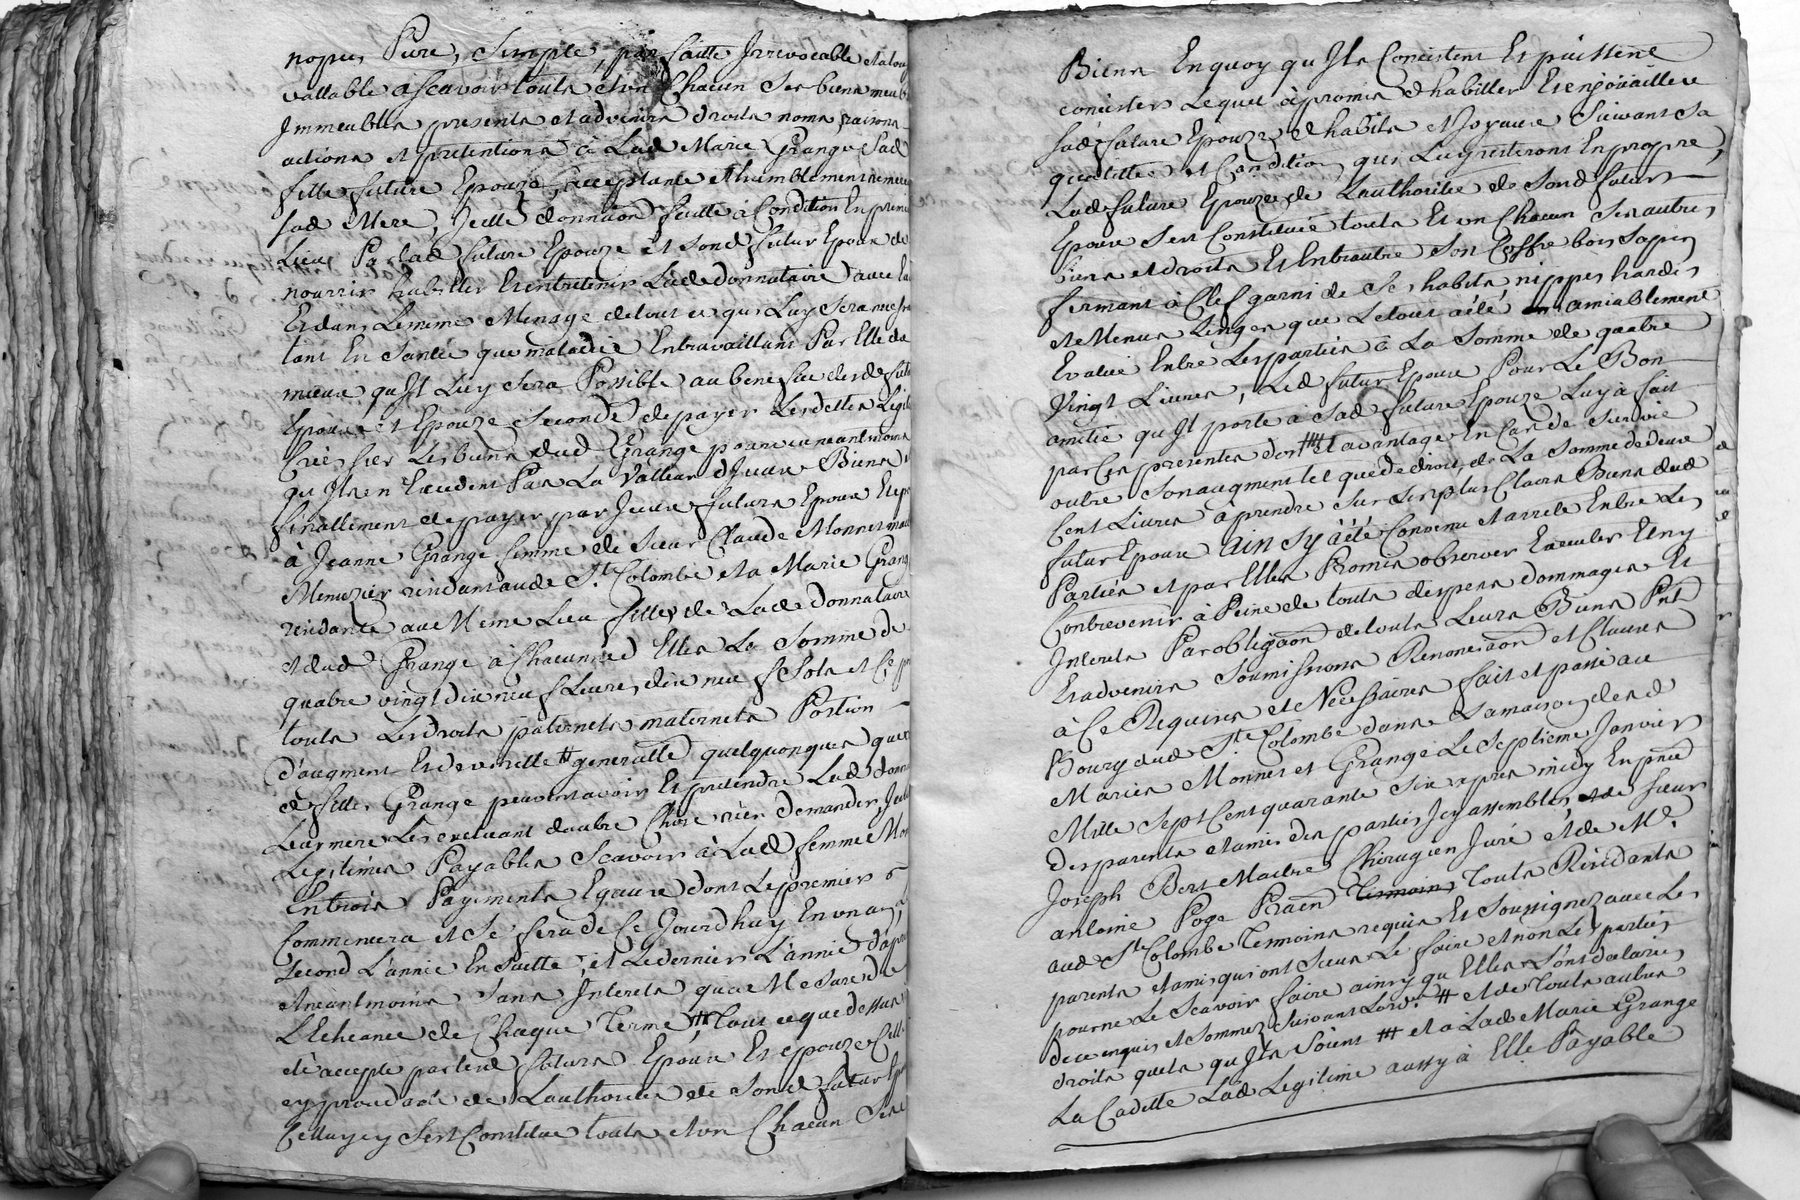 nopces Pure, Simple, parfaitte Irrevocable et atou
vallable asçavoir touts et un Chacun Ses biens meub
Immeubles presents et advenirs droits noms raisons
actions et pretentions à Lad Marie Grange Sad
fille future Epouze, acceptante et humblement remer
sad Mere, Icelle donnaôn faitte à Condition En premie
Lieu Par lad future Epouze et Sond futur Epoux de
nourrir habiller Et entretenir Lad donnataire avec Eu
Et dans Le meme Menage de tout ce qui Luy Sera necess
tant En Santée que maladie En travaillant Par Elle du
mieux qu'Il Luy Sera Possible au benefice desd futu
Epoux et Epouze Seconde de payer Les dettes Legit
Créés sur Les biens dud Grange pourvu neantmoins
qu'Ils n'Excedent Pas La Valleur d'Iceux Biens
finallement de payer par Iceux futurs Epoux Et ep
à Jeanne Grange femme de Sieur Claude Monnet mai
Menuzier residant aud St. Colombe et a Marie Grang
residante au Meme Lieu filles de Lad donnataire
et dud Grange à Chacunne d'Elles La Somme de
quatre vingt dix neuf Livres dix neuf Sols et Ce p
touts Les droits paternels maternels Portion
d'augment Et de virille # generalle quelquonques que
d filles Grange peuvent avoir Et pretendre Lad donn
Leur mere Les excluant d'autre Chose rien demander, Icel
Legitimes Payables Scavoir à Lad femme Mon
En trois Payements Egaux dont Le premier
Commencera et Se fera de Ce Jourdhuy En un an,
second L'année En Suitte, et Le dernier L'année d'apr
et neantmoins Sans Interets qu'a Mesure de
L'Echeance de Chaque Terme, # Tout ce que dessus
été accepté par lesd futurs Epoux Et epouze Cell
cy procedant de L'authorité de Sond futur Epo
Celluy cy Sest Constitué touts et un Chacun Ses
Biens En quoy qu'Ils Consistent Et puissent
consister Lequel à promis d'habiller Et enjouailler
sad future Epouze d'habits et Joyaux Suivant Sa
qualittée et Condition, qui Luy resteront En propre,
Lad future Epouze de L'authorité de Sond futur
Epoux Sest Constituée touts Et un Chacun Ses autres
biens et droits Et Entr'autre Son Coffre bois Sapin
fermant à Clef garni de Ses habits nippes hardes
et Menus Linges que Le tout à été amiablement
Evalué Entre Les parties à La Somme de quatre
Vingt Livres, Led futur Epoux Pour Le Bon
amitié qu'Il porte à Sad future Epouze Luy à fait
par Ces presentes don # et avantage En Cas de Survie
outre Son augment tel que de droit, de La Somme de deux
Cent Livres à prendre Sur Les plus Clairs Biens dud
futur Epoux Ainsy à été Convenu et arreté Entre Les
Parties et par Elles Promis observer Executer Et ny
Contrevenir à Peine de touts despens dommages Et
Interets Par obligaôn de touts Leurs Biens Pnts
Et advenirs Soumissions Renonciaôn et Clauses
à Ce Requises et Nécessaires fait et passé au
Bourg dud St. Colombe dans La maison desd
Mariés Monnet et Grange Le Septieme Janvier
Mille Sept Cent quarante Six apres midy En pnce
des parents et amis des parties Icy assemblés et de sieur
Joseph Bert Maitre Chirurgien Juré et de Me.
antoine Poge Praën Temoins touts Residants
aud St. Colombe Temoins requis Et Soussignez avec Les
parents et amis qui ont Sceus Le faire et non Les parties
pour ne Le Scavoir faire ainsy qu'Elles L'ont declaré
de ce enquis et Sommez Suivant Lord. # et de touts autres
droits quels qu'Ils Soient # et à Lad Marie Grange
La Cadette Lad Legitime aussy à Elle Payable